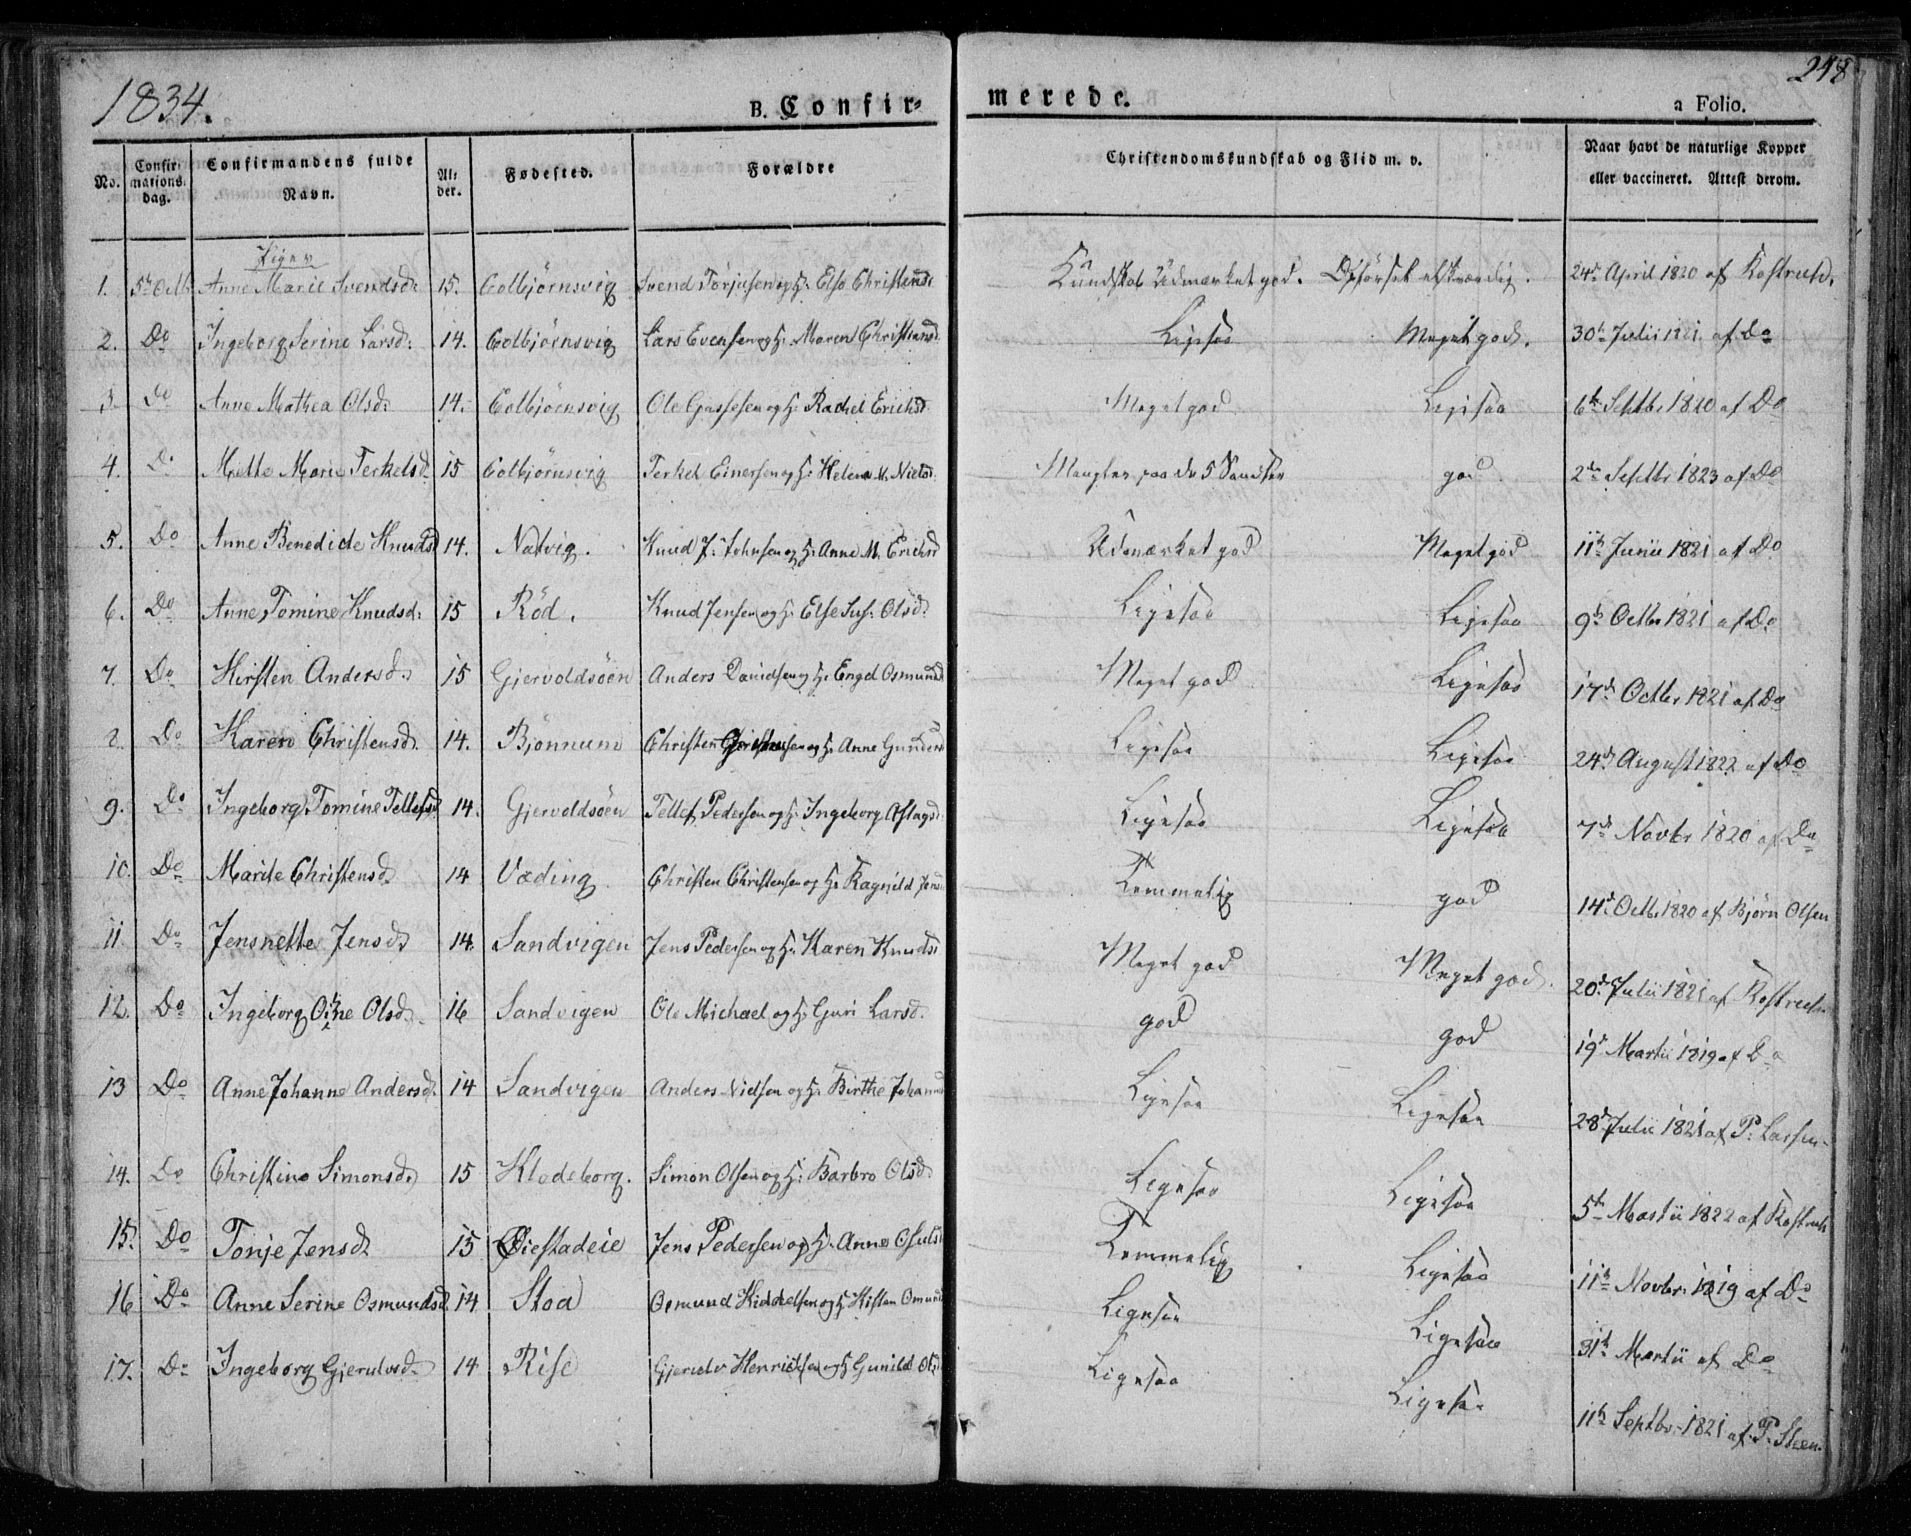 1834.
B. Confir-
merede.
248
a Folio.
No.
Confir-
mations-
dag.
Confirmandens fulde
Navn.
Al-
der.
Fødested.
Forældre
Christendomskundskab og Flid m. v.
Naar havt de naturlige Kopper
eller vaccineret. Attest derom.
Piger
1. 5te Octb Anne Marie Svendsd: 15. Colbjörnsvig Svend Torjusen og H: Else Christensd: Kundskab Udmærket god. Opførsel elskværdig. 24de April 1820 af Kostrub.
2. Do Ingeborg Serine Larsd: 14. Colbjörnsvig Lars Evensen og H: Maren Christiansd: Ligesaa Meget god. 30te Julii 1821 af Do
3. Do Anne Mathea Olsd: 14. Colbjörnsvig Ole og H: Rachel Erichsd. Meget god Ligesaa 6te Septbr 1820 af Do
4. Do Mette Marie Terkelsd: 15 Colbjörnsvig Terkel Einersen og H: Helene M. Nielsd. Mangler paa de 5 god 2den Septbr 1823 af Do
5. Do Anne Benedicte Knudsd 14. Natvig. Knud J: Johnsen og H: Anne M. Erichsd Udmærket god Meget god 11te Junii 1821 af Do
6. Do Anne Tomine Knudsd: 15 Röd. Knud Jensen og H: Else Sus: Olsd. Ligesaa Ligesaa 9de Octbr 1821 af Do
7. Do Kirsten Andersd. 15 Gjervoldsöen Anders Danielsen og H: Engel Osmundsd Meget god Ligesaa 17de Octbr 1821 af Do
8. Do Karen Christensd. 14. Bjönnum Christen og H: Anne Gundersd Ligesaa Ligesaa 24de August 1822 af Do
9. Do Ingeborg Tomine Tellefsd. 14. Gjervoldsöen Tellef Pedersen og H: Ingeborg Aslagsd. Ligesaa Ligesaa 7de Novbr 1820 af Do
10. Do Marite Christensd. 14 Væding Christen Christensen og H: Ragnild Jensd Temmelig god 14de Octbr 1820 af Bjørn Olsen
11 Do Jensnette Jensd. 14. Sandvigen Jens Pedersen og H: Karen Knudsd: Meget god Meget god. 20de Julii 1821 af Kostrub
12. Do Ingeborg Olsd. 16 Sandvigen Ole Michael og H: Guri Larsd. god god 19de Martii 1819 af Do
13 Do Anne Johanne Andersd. 14 Sandvigen Anders Nielsen og H: Birthe Johannesd Ligesaa Ligesaa 28de Julii 1821 af P: Larsen
14. Do Christine Simonsd. 15 Klodeborg. Simon Olsen og H: Barbro Olsd. Ligesaa Ligesaa 5te Martii 1822 af Kostrub
15. Do Tonje Jensd. 15 Øiestadeie Jens Pedersen og H. Anne Osulsd Temmelig Ligesaa 11te Novbr. 1819 af Do
16 Do Anne Serine Osmundsd. 14 Stoa Osmund Kiddelsen og H Kisten Omundsd Ligesaa Ligesaa 31te Martii af Do
17. Do Ingeborg Gjerulvsd. 14 Rise Gjerulv Henrichsen og H Gunild Olsd Ligesaa Ligesaa 11te Septbr. 1821 af P. Steen.